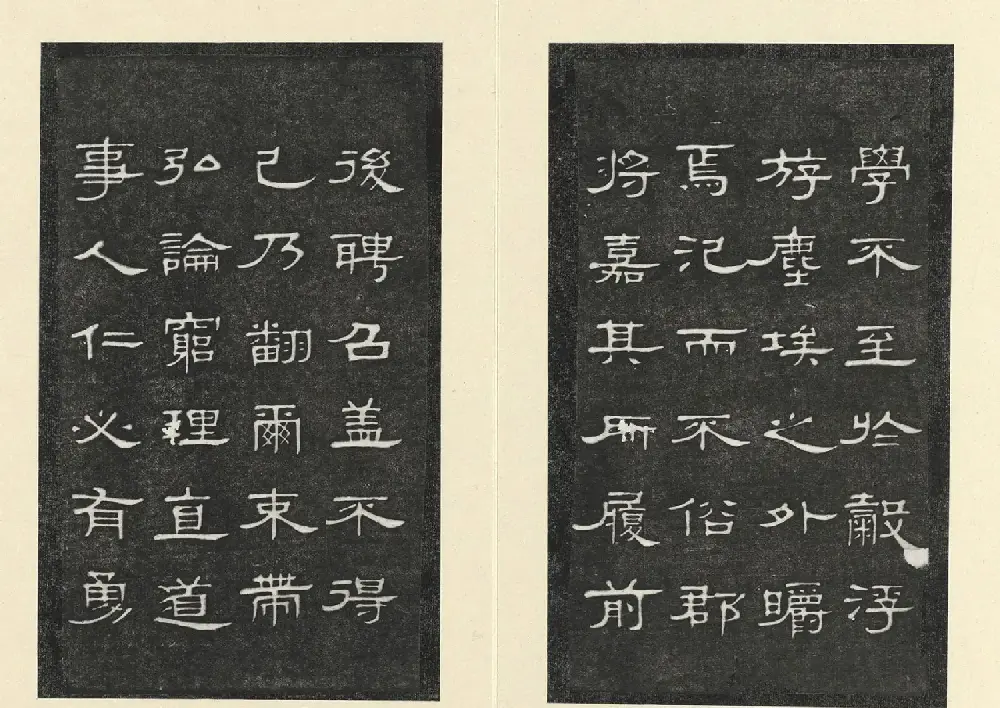 學不至於穀浮
斿塵埃之外皭
焉氾而不俗郡
將嘉其所履前
後聘召盖不得
已乃翻爾束帶
弘論窮理直道
事人仁必有勇